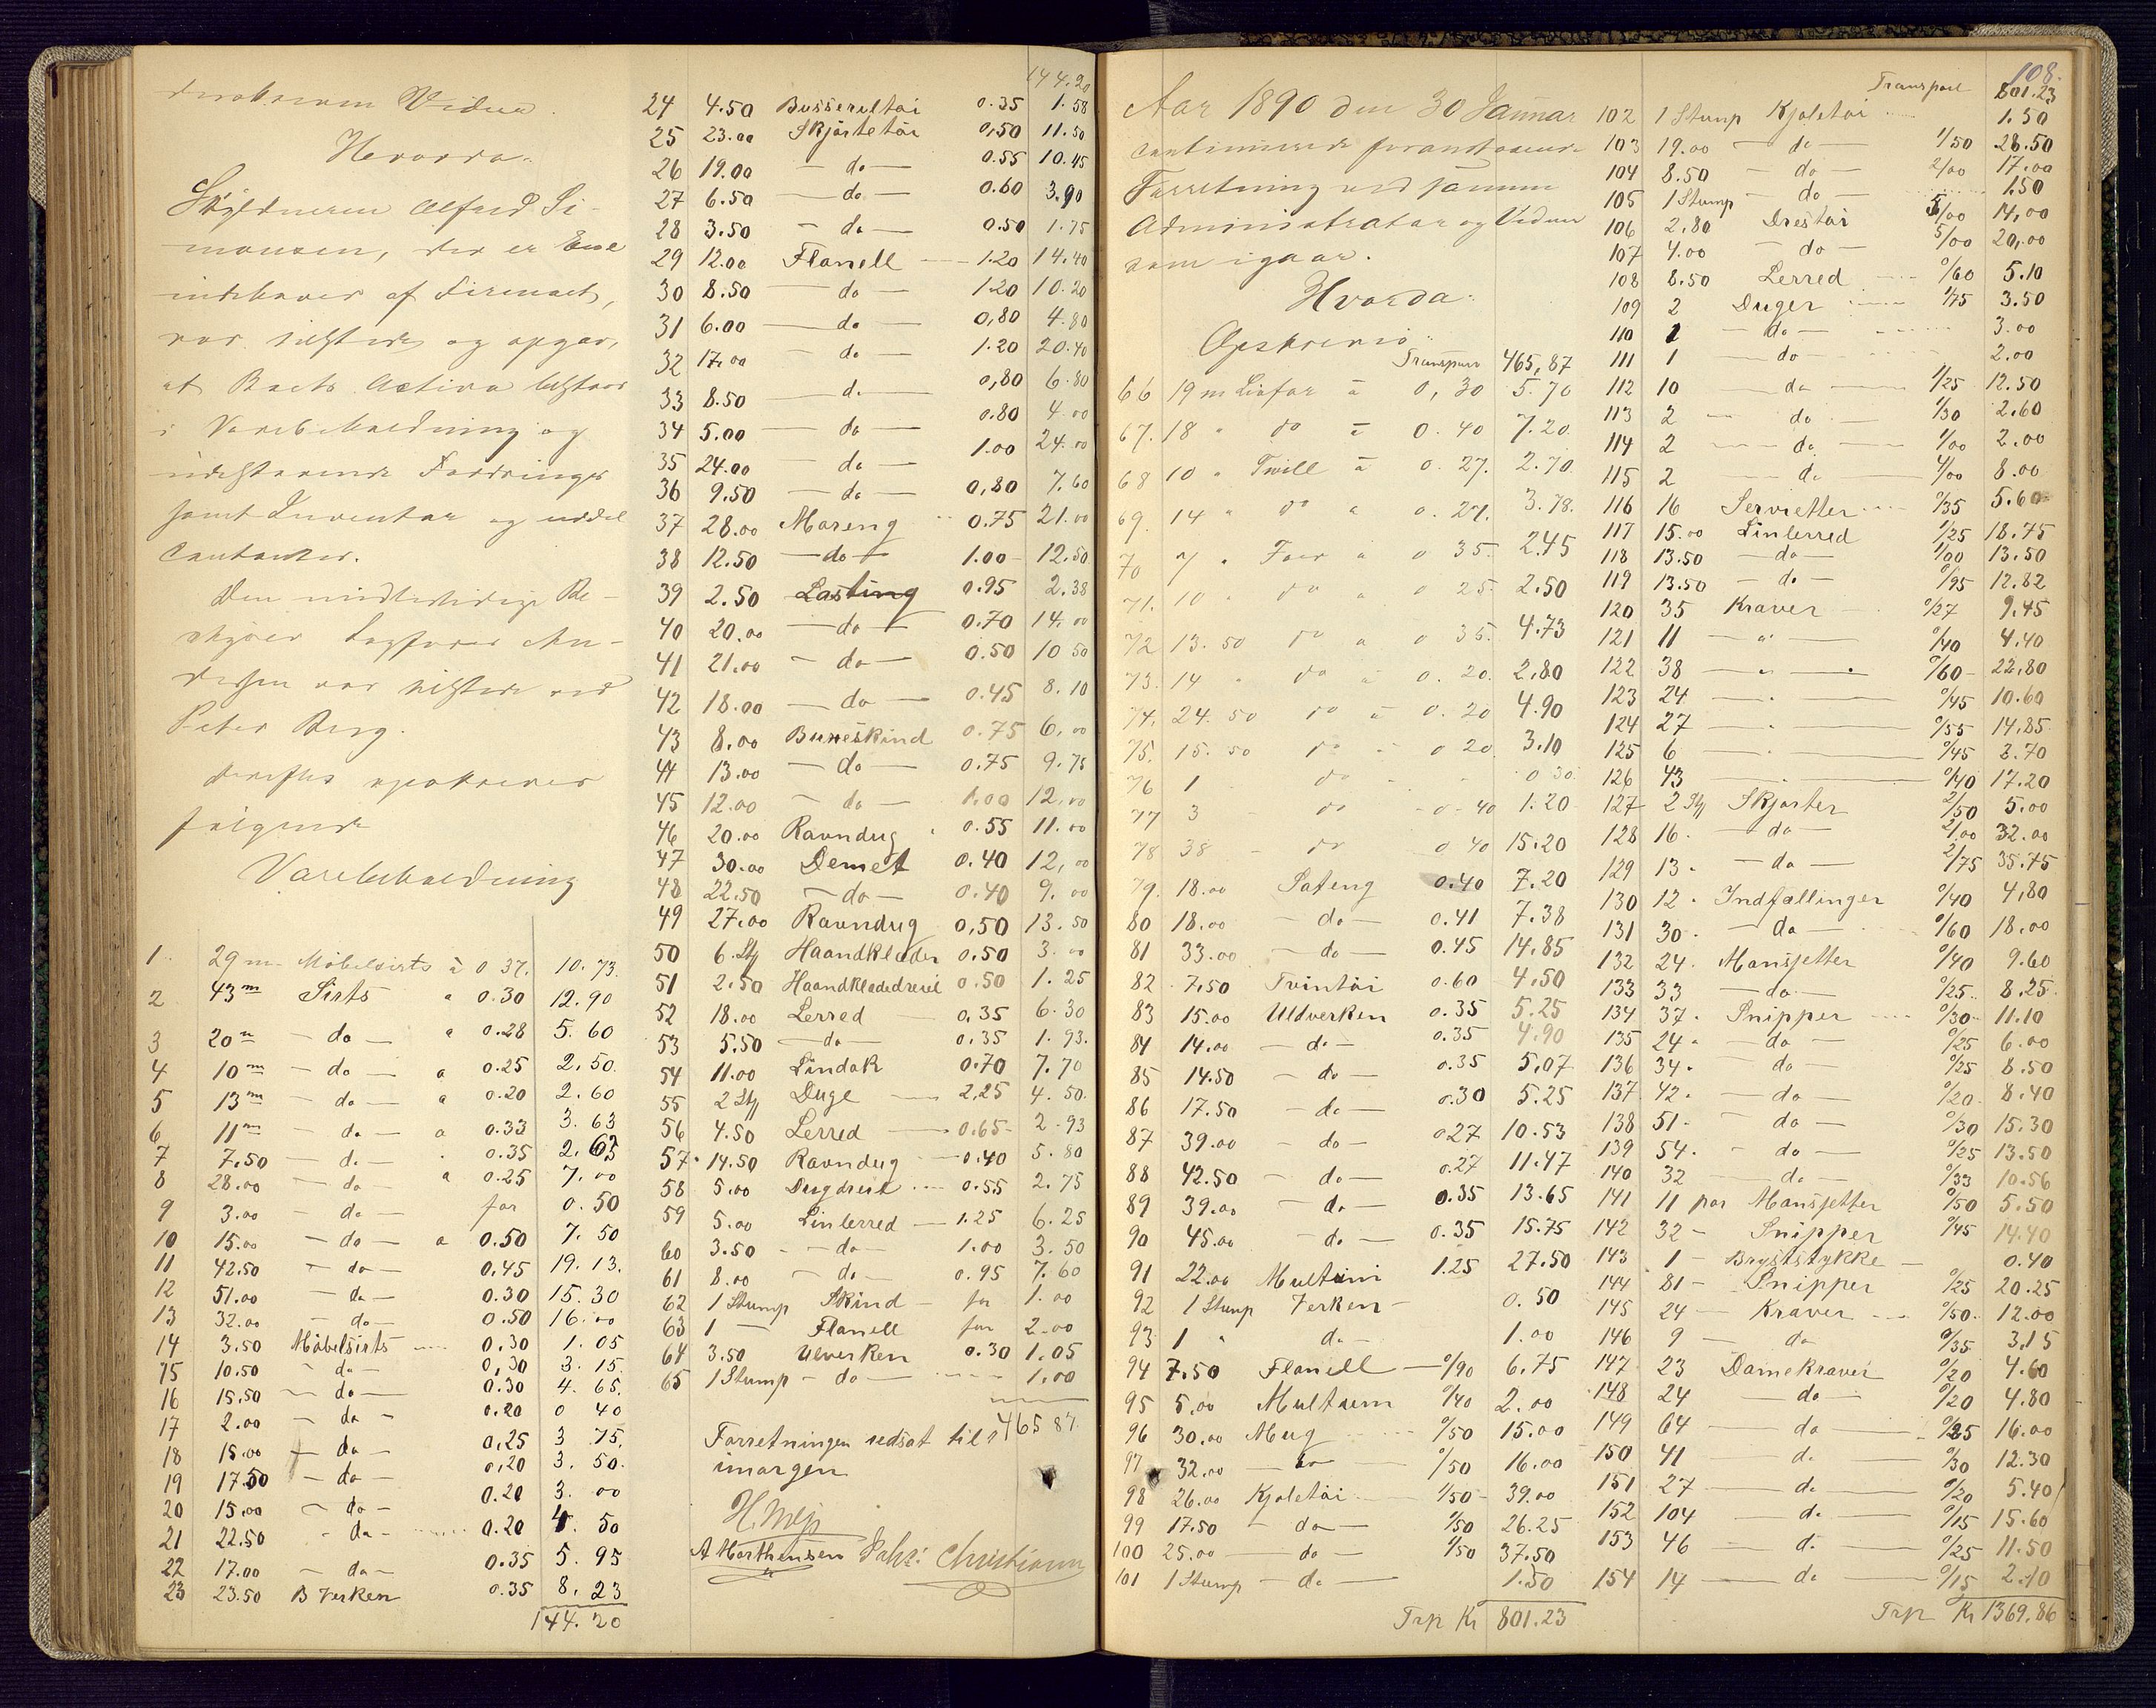 Vidner
Hvorda:
Skyldneren Alfred Si-
monsen, der er Ene
indehaver af Firmaet,
var tilstede og opgav,
at Boets Activa bestaar
i Varebeholdning og
udestaaende Fordringer
samt Inventar og
Contanter.
Den midlertidige Be-
styrer Sagfører An-
dersen var tilstede ved
Peter Berg.
Derefter opskreves
følgende
Varebeholdning
1 29 m Möbelsirts à 0 37. 10. 73.
2 43 m Sirts a 0.30 12.90
3 20 m - do - a 0.28 5.60
4 10 m - do - a 0.25 2.50.
5 13 m - do - a 0.20 2.60
6 11 m - do - a 0.33 3.63
7 7.50 - do - 0.35 2.63
8 28.00 - do - a 0.25 7.00
9 3.00 - do - for 0.50
10 15.00 - do - a 0.50 7.50
11 42.50 - do - 0.45 19.13.
12 51.00 - do - 0.30 15.30
13 32.00 - do - 0.50 16.00
14 3.50 Möbelsirts 0.30 1.05
15 10.50 - do - 0,30 3.15
16 15.50 - do - 0.30 4.65.
17 2.00 - do - 0.20 0 40
18 15.00 - do - 0,25 3 75.
19 17.50 - do - 0,20 3.50.
20 15.00 - do - 0.20 3.00
21 22.50 - do - 0.20 4.50
22 17.00 - do - 0.35 5.95
23 23.50 B Verken 0.35 8.23
144.20
144.20
24 4.50 Busserultøi 0.35 1.58
25 23.00 Skjortetøi 0,50 11.50
26 19.00 - do - 0.55 10.45
27 6.50 - do - 0.60 3.90
28 3.50 - do - 0.50 1.75
29 12.00 Flanell 1.20 14.40
30 8.50 - do - 1.20 10.20
31 6.00 - do - 0,80 4.80
32 17.00 - do - 1.20 20.40
33 8.50 - do - 0,80 6.80
34 5.00 - do - 0.80 4.00
35 24.00 - do - 1.00 24.00
36 9.50 - do - 0,80 7.60
37 28.00 Moreng 0.75 21.00
38 12.50 - do - 1.00 12.50
39 2.50 Lasting 0.95 2.38
40 20.00 - do - 0.70 14.00
41 21.00 - do - 0.50 10 50
42 18.00 - do - 0.45 8.10
43 8.00 Buxeskind 0.75 6.00
44 13.00 - do - 0.75 9.75
45 12.00 - do - 1.00 12.00
46 20.00 Ravndug 0.55 11.00
47 30.00 Demet 0.40 12,00
48 22.50 - do - 0.40 9.00
49 27.00 Ravndug 0,50 13.50
50 6 Stk Haandklæder 0.50 3.00
51 2.50 Haandklædedreiel 0.50 1.25
52 18.00 Lerred 0.35 6.30
53 5.50 - do - 0.35 1.93.
54 11.00 Lindak 0.70 7.70
55 2 Stk Duge 2.25 4.50.
56 4.50 Lerred 0.65 2.93
57 14.50 Ravndug 0.40 5.80
58 5.00 Dugdreil 0.55 2.75
59 5.00 Linlerred 1.25 6.25
60 3.50 - do - 1.00 3.50
61 8.00 - do - 0.95 7.60
62 1 Stump Skind for 1.00
63 1 - Flanell for 2.00
64 3.50 Ulverken 0.30 1.05
65 1 Stump - do - 1.00
465 87.
Forretningen udsat til i
morgen
A Morthensen Johs: Christiansen
108.
Aar 1890 den 30 Januar
continuerede foranstaaende
Forretning ved samme
Administrator og Vidner
som igaar.
Hvorda:
Opskreves:
Transport 465,87
66 19 m Liafor à 0,30 5.70
67. 18 " do à 0.40 7.20.
68 10 " Twill à 0.27. 2.70.
69. 14 " do a 0.27. 3.78.
70 7 " Foer a 0 35. 2.45
71. 10 " do a 0 25. 2.50
72 13.50 do a 0 35. 4.73
73. 14 " do a 0.20. 2.80
74. 24.50 do à 0.20 4.90
75. 15.50 do 0 20 3.10
76 1 do 0 30
77 3 do 0-40 1.20
78 38 do 0 40 15.20
79. 18.00 Sateng 0.40 7.20
80 18.00 - do - 0.41 7.38
81 33.00 - do - 0.45 14.85
82 7.50 Tvintøi 0.60 4.50
83 15.00 Uldverken 0.35 5.25
84 14.00 - do - 0.35 4.90
85 14.50 - do - 0.35 5,07
86 17.50 - do - 0.30 5.25
87 39.00 - do - 0.27 10.53
88 42.50 - do - 0.27 11.47
89 39.00 - do - 0.35 13.65
90 45.00 - do - 0.35 15.75
91 22.00 Multum 1.25 27.50
92 1 Stump Verken 0.50
93 1 " do - 1.00
94 7.50 Flanell 0/90 6.75
95 5.00 Multum 0/40 2.00
96 30.00 Mug 0/50 15.00
97 32.00 - do - 0/50 16.00
98 26.00 Kjoletøi 1/50 39.00
99 17.50 - do - 1/50 26.25
100 25.00 - do - 1/50 37.50
101 1 Stump - do - 1.50
Trp Kr 801.23
Transport 801.23
102 1 Stump Kjoletøi 1.50
103 19.00 - do - 1/50 28.50
104 8.50 - do - 2/00 17.00
105 1 Stump - do - 1.50
106 2.80 Drestøi 5/00 14,00
107 4.00 - do - 5/00 20,00
108 8.50 Lerred 0/60 5.10
109 2 Duger 1/75 3.50
110 1 - do - 3.00
111 1 - do - 2.00
112 10 - do - 1/25 12.50
113 2 - do - 1/30 2.60
114 2 - do - 1/00 2.00
115 2 - do - 4/00 8.00
116 16 Servietter 0/35 5.60
117 15.00 Linlerred 1/25 18.75
118 13.50 - do - 1/00 13.50
119 13.50 - do - 0/95 12.82
120 35 Kraver 0/27 9.45
121 11 - " - 0/40 4.40
122 38 - " - 0/60 22.80
123 24 - " - 0/45 10.60
124 27 - " - 0/55 14,85
125 6 - " - 0/45 2.70
126 43 - " - 0/40 17.20
127 2 Stk Skjorter 2/50 5.00
128 16. - do - 2/00 32.00
129 13. - do - 2/75 35.75
130 12. Indfallinger 0/40 4,80
131 30. - do - 0/60 18.00
132 24. Mansjetter 0/40 9.60
133 33 - do - 0/25 8.25.
134 37. Snipper 0/30 11.10
135 24. - do - 0/25 6.00
136 34. do - 0/25 8.50
137. 42. - do - 0/20 8.40
138 51. - do - 0/30 15.30
139 54. - do - 0/25 13.50
140 32 - do - 0/33 10.56
141 11 par Mansjetter 0/50 5.50
142 32 - Snipper 0/45 14.40
143 1 - Bryststykke 0.40
144 81 - Snipper 0/25 20.25
145 24 - Kraver 0/50 12.00
146 9 - do 0/35 3.15
147 23 Damekraver 0/20 4.60
148 24 - do - 0/20 4.80
149 64 - do - 0/25 16.00
150 41 - do 0/30 12.30
151 27 - do 0/20 5.40
152 104 do - 0/15 15.60
153 46 - do 0/25 11.50
154 14 - do - 0/15 2.10
Trp Kr 1369.86